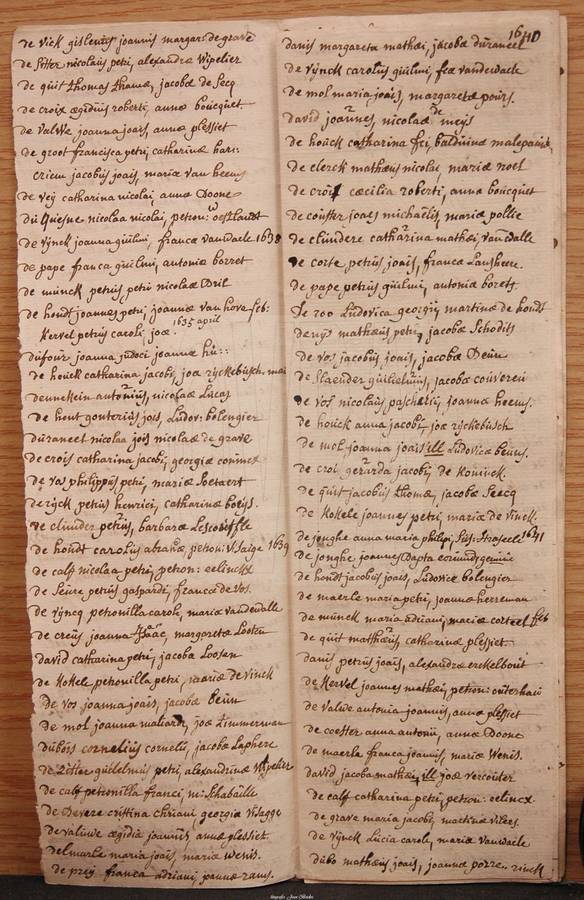 de Vick gislenus joannis margar: de grave
de Sitter nicolaus petri, alexandræ Wipelier
de quit thomas thomæ, jacobæ de Secq
de croix ægidius roberti, annæ boucquet
de Valwe joanna joais, annæ plessiet
de groot francisca petri catharinæ hari:
criem jacobus joais, mariæ van heems
de vey catharina nicolai annæ Doone
du Quesne nicolaa nicolai, petron: woestlandt
de Vijnck joanna guilmi, francæ vandwale 1638
de pape franca guilmi, antoniæ borret
de munck petrus petri nicolaæ Dril
de hondt joannes petri, joannæ van hove feb:
Kervel petrus caroli, joæ. 1635 april
dufour joanna judoci joannæ hu::
de houck catharina jacobi, joæ ryckebusch. mai
dennekin antonius, nicolaæ Lucas
de hont gonterius jois, Ludov: bolengier
duraneet nicolaa jois nicolaæ de grave
de crois catharina jacobi, georgiæ coninck
de vos philippus petri, mariæ Soetaert
de ryck petrus henrici, catharinæ boeys.
de clinder petrus, barbaræ Lescouffle
de hondt carolus abrahæ, petron: V. Laige 1639
de calf nicolaa petri, petron: eelinckx
de Seure petrus gaspardi, francæ de vos.
de Vyncq petronilla caroli, mariæ vandewalle
de creus joanna isaac, margaretæ Looten
david catharina petri, jacobæ Loosen
de Kokele petronilla petri, mariæ de Vinck
de vos joanna joais, jacobæ Beun
de mol joanna maliardi, joæ timmerman
dubois cornelius cornelii, jacobæ Laphere
de Zitter guillelmus petri, alexandrinæ Wipelier
de calf petronilla franci, m: Schabaille
de Devere cristina chriani georgiæ Visagge
de valuwe ægidia joannis, annæ plessiet.
delmarle maria joais, mariæ wenis.
de prey franca adriani, joannæ rams.
1640
danis margareta mathæi, jacobæ duraneel
de Vijnck carolus guilmi, feæ vandewaele
de mol maria joais, margaretæ pours.
david joannes, nicolaæ de meys
de houck catharina fci, balduinæ malepaart
de clerck mathæus nicolai, mariæ noel
de crois cæcilia roberti, anna boucquet
de couster joaes michaelis, mariæ pollie
de clindere catharina mathæi vandwalle
de corte petrus joais, franca Lansheere.
de pape petrus guilmi, antonia borett
de roo Ludovica georgii, martinæ de hondt
denys mathæus petri, jacobæ Schodits
de vos jacobus joais, jacobæ Beun
de Slaender guilielmus, jacobæ couveren
de vos nicolaus paschasii, joannæ heems.
de houck anna jacobi, joæ ryckebusch
de mol joanna joais ill Ludovicæ beuns.
de croi gerarda jacobi, de Koninck.
de quit jacobus thomæ, jacobæ Seecq
de Kokele joannes petri, mariæ de Vinck.
de jonghe anna maria philipi, Sus: Stroseel 1641
de jonghe joannes Bapta eorundem geminæ
de hondt jacobus joais, Ludovicæ bolengier
de maerle maria petri, joannæ herreman
de munck maria adriani, mariæ corteel feb
de quit matthæus, catharinæ plessiet.
danis petrus joais, alexandræ erckelbout
de Kervel joannes mathæi, petron: outerhau
de Valuwe antonia joannis, annæ plessiet
de coester anna antonii, annæ Doone
de maerla franca joannis, mariæ Wenis.
david jacoba mathæi, ill joæ vercouter
de calf catharina petri, petron: eelincx.
de grave maria jacobi, martinæ vilers
de Vijnck Lucia caroli, mariæ Vanwaele
dubo mathæus joais, joannæ porre.. rinck